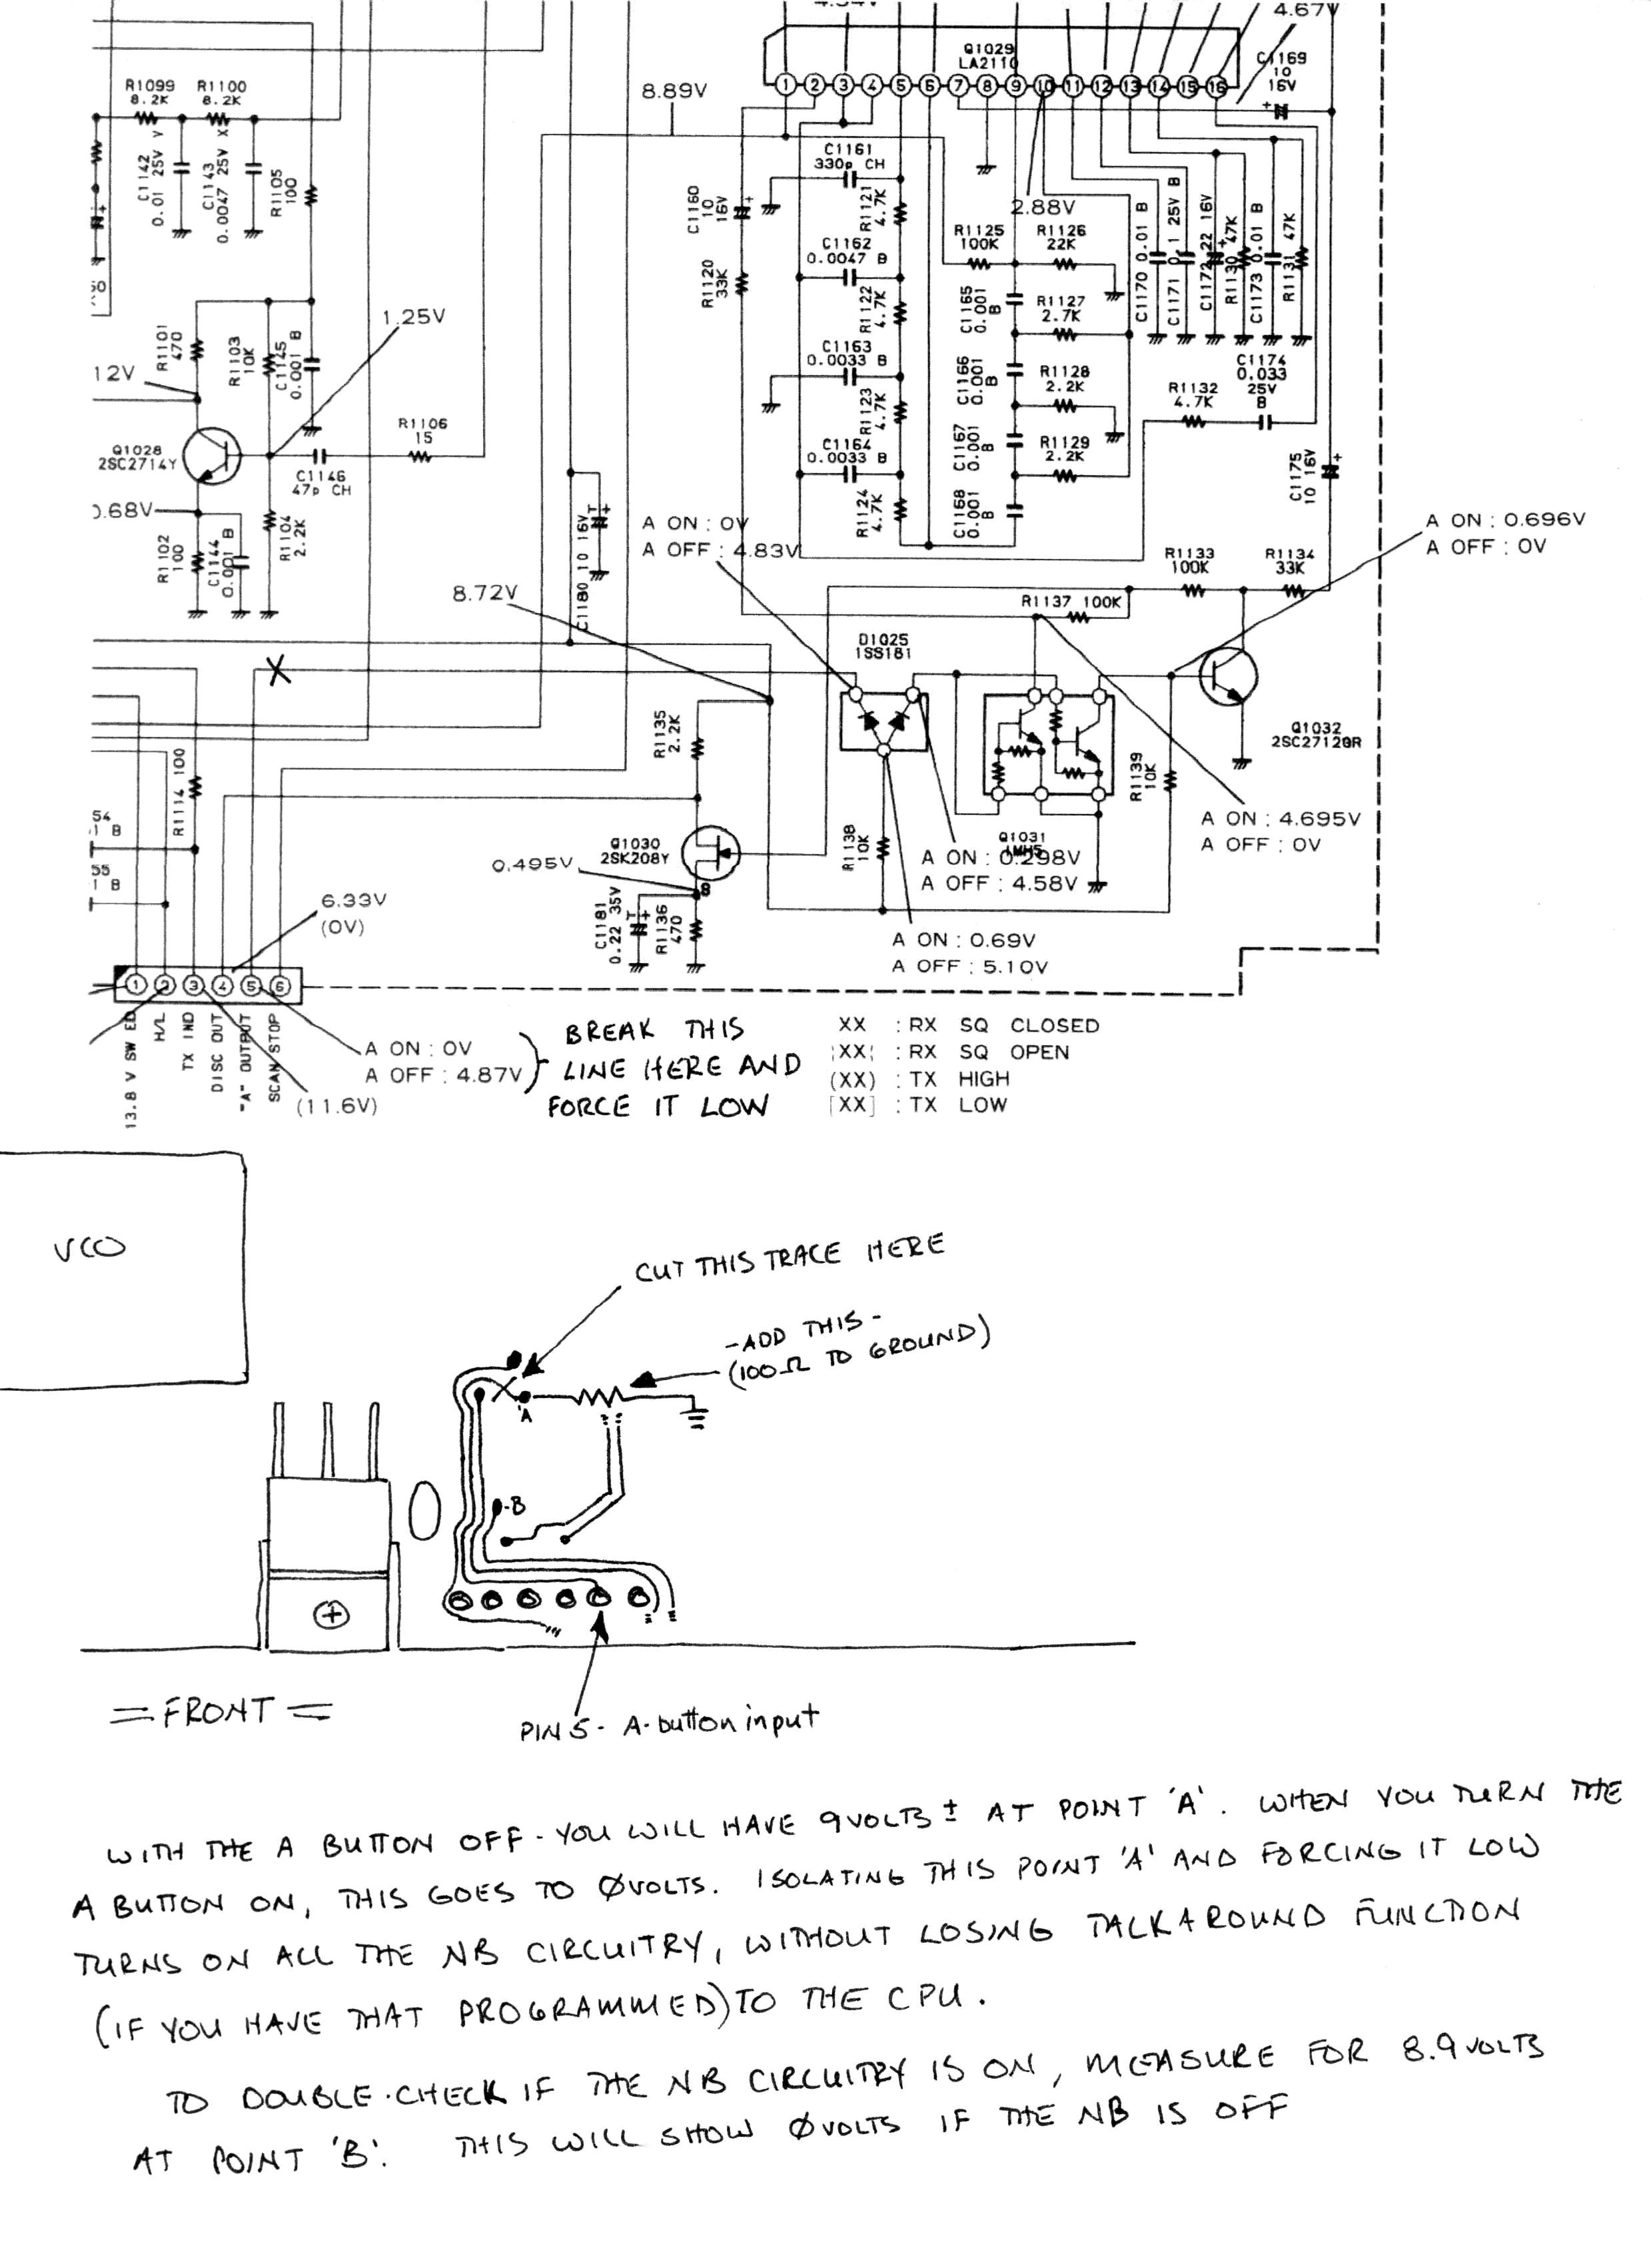 4.67V
Q1029
LA2110
C1169
10
16V
8.89V
1 2 3 4 5 6 7 8 9 10 11 12 13 14 15 16
R1099
8.2K
R1100
8.2K
C1142
0.01 25V Y
C1143
0.0047 25V X
R1105
100
C1160
10
16V
R1120
33K
C1161
330p CH
R1121
4.7K
C1162
0.0047 B
R1122
4.7K
C1163
0.0033 B
R1123
4.7K
C1164
0.0033 B
R1124
4.7K
2.88V
R1125
100K
R1126
22K
C1165
0.001
B
R1127
2.7K
C1166
0.001
B
R1128
2.2K
C1167
0.001
B
R1129
2.2K
C1168
0.001
B
C1170 0.01 B
C1171 0.1 25V B
R1130 47K
C1173 0.01 B
R1131 47K
C1174
0.033
25V
B
R1132
4.7K
C1175
10 16V
1.25V
R1101
470
R1103
10K
C1145
0.001 B
12V
Q1028
2SC2714Y
R1106
15
C1146
47p CH
R1102
100
C1144
0.001 B
R1104
2.2K
C1180 10 16V
A ON : 0V
A OFF : 4.83V
A ON : 0.696V
A OFF : 0V
R1133
100K
R1134
33K
8.72V
R1137 100K
D1025
1SS181
X
R1135
2.2K
Q1032
2SC2712GR
R1139
10K
R1114 100
54
1 B
55
1 B
Q1030
2SK208Y
R1138
10K
Q1031
A ON : 4.695V
A OFF : 0V
A ON : 0.298V
A OFF : 4.58V
0.495V
B
C1181
0.22 35V
R1136
470
6.33V
(0V)
A ON : 0.69V
A OFF : 5.10V
1 2 3 4 5 6
13.8 V SW ED
H/L
TX IND
DISC OUT
"A" OUTPUT
SCAN STOP
A ON : 0V
A OFF : 4.87V
(11.6V)
BREAK THIS
LINE HERE AND
FORCE IT LOW
XX : RX SQ CLOSED
¦XX¦ : RX SQ OPEN
(XX) : TX HIGH
[XX] : TX LOW
VCO
CUT THIS TRACE HERE
-ADD THIS-
(100Ω TO GROUND)
'A
-B
=FRONT=
PIN 5 - A-button input
WITH THE A BUTTON OFF - YOU WILL HAVE 9VOLTS ± AT POINT 'A'. WHEN YOU TURN THE
A BUTTON ON, THIS GOES TO ØVOLTS. ISOLATING THIS POINT 'A' AND FORCING IT LOW
TURNS ON ALL THE NB CIRCUITRY, WITHOUT LOSING TALKAROUND FUNCTION
(IF YOU HAVE THAT PROGRAMMED) TO THE CPU.
TO DOUBLE-CHECK IF THE NB CIRCUITRY IS ON, MEASURE FOR 8.9VOLTS
AT POINT 'B'. THIS WILL SHOW ØVOLTS IF THE NB IS OFF